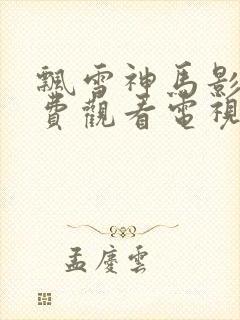 飄雪神馬影
費觀看電視
孟慶雲